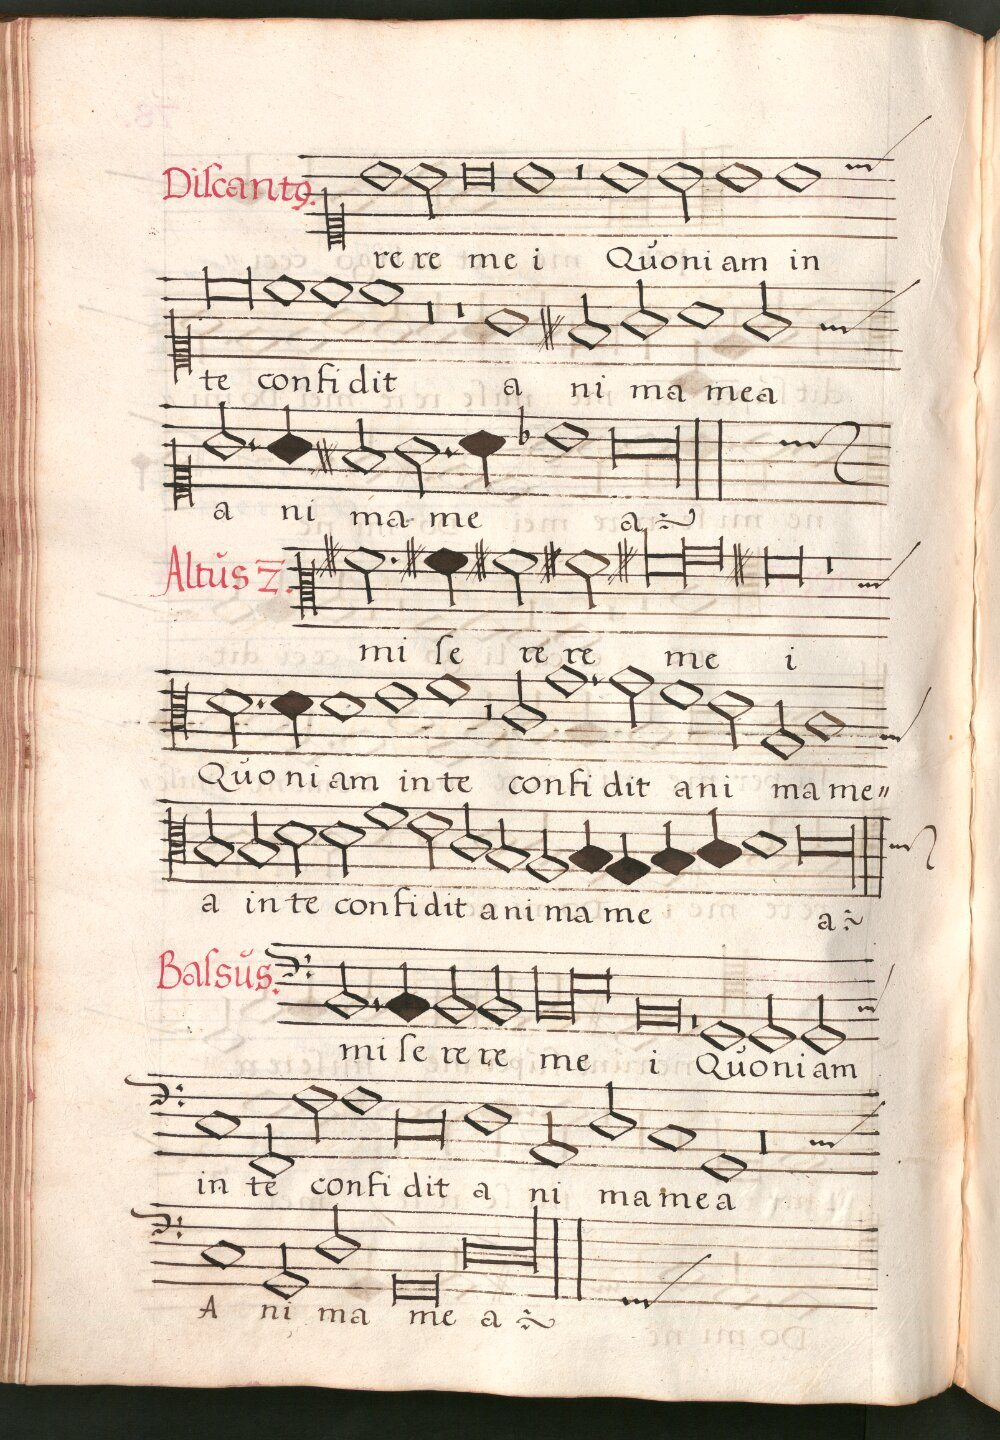 Diſcantꝰ.
re re me i Quoni am in
te confi dit a ni ma mea
a ni ma me a
Altus 2.
mi ſe re re me i
Quo ni am in te confi dit ani ma me"
a in te confidit anima me a
Baſsus.
mi ſe re re me i Quoniam
in te confi dit a ni ma mea
A ni ma me a